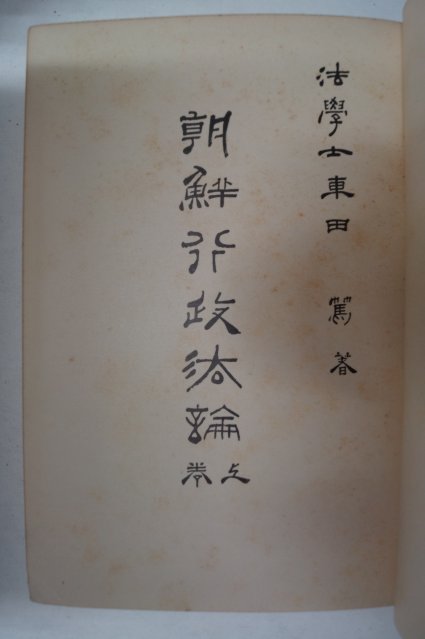 法學士車田 篤著
朝鮮行政法論
上卷